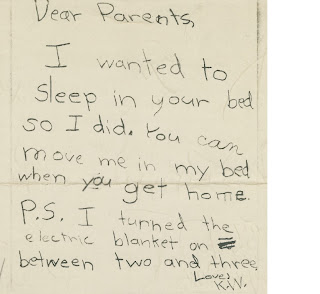 Dear Parents,
I wanted to
sleep in your bed
so I did. You can
move me in my bed
when you get home.
P.S. I turned the
electric blanket on
between two and three.
Love,
K.W.